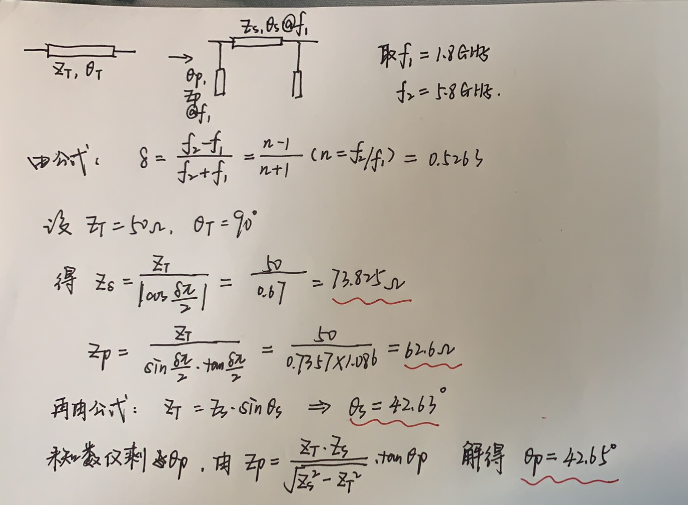 Z_T, θ_T
Z_s, θ_s @f₁
θ_p,
Z_p
@f₁
取 f₁ = 1.8GHz
f₂ = 5.8GHz.
由公式: δ = (f₂-f₁)/(f₂+f₁) = (n-1)/(n+1) (n = f₂/f₁) = 0.5263
设 Z_T = 50Ω, θ_T = 90°
得 Z_s = Z_T/|cos δπ/2| = 50/0.67 = 73.825Ω
Z_p = Z_T/(sin δπ/2 · tan δπ/2) = 50/(0.7357×1.086) = 62.6Ω
再由公式: Z_T = Z_s·sinθ_s ⇒ θ_s = 42.63°
未知数仅剩 θ_p, 由 Z_p = (Z_T·Z_s)/√(Z_s²-Z_T²) · tanθ_p 解得 θ_p = 42.65°